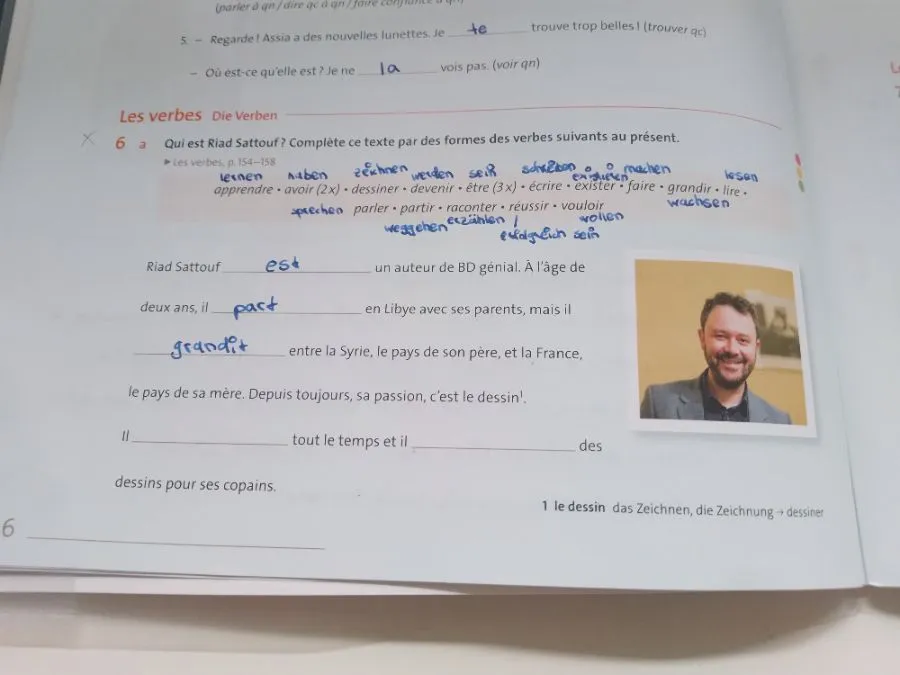 (parler à qn / dire qc à qn / faire confiance à qn)
5 – Regarde ! Assia a des nouvelles lunettes. Je te trouve trop belles ! (trouver qc)
– Où est-ce qu'elle est ? Je ne la vois pas. (voir qn)
Les verbes Die Verben
6 a Qui est Riad Sattouf ? Complète ce texte par des formes des verbes suivants au présent.
▶ Les verbes, p. 154–158
lernen haben zeichnen werden sein schreiben existieren machen lesen
apprendre • avoir (2x) • dessiner • devenir • être (3x) • écrire • exister • faire • grandir • lire •
sprechen parler • partir • raconter • réussir • vouloir wachsen
weggehen erzählen / erfolgreich sein wollen
Riad Sattouf est un auteur de BD génial. À l'âge de
deux ans, il part en Libye avec ses parents, mais il
grandit entre la Syrie, le pays de son père, et la France,
le pays de sa mère. Depuis toujours, sa passion, c'est le dessin¹.
Il tout le temps et il des
dessins pour ses copains.
1 le dessin das Zeichnen, die Zeichnung → dessiner
6